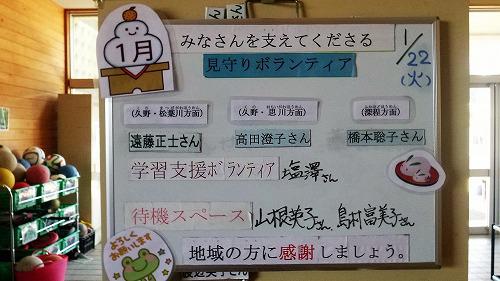 1月
みなさんを支えてくださる
1/22
(火)
見守りボランティア
(久野・松葉川方面)
(久野・思川方面)
(深程方面)
遠藤正士さん
髙田澄子さん
橋本聡子さん
学習支援ボランティア 塩澤さん
待機スペース 山根英子さん 島村富美子さん
よろしくお願いします
地域の方に感謝しましょう。